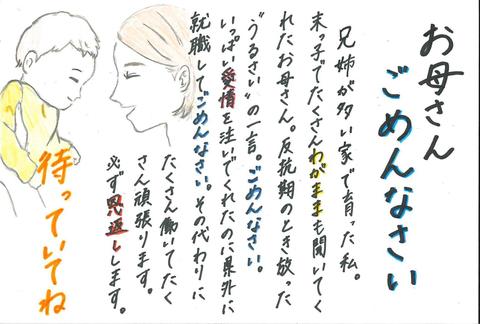 お母さん
ごめんなさい
兄姉が多い家で育った私。
末っ子でたくさんわがままも聞いてく
れたお母さん。反抗期のとき放った
"うるさい"の一言。ごめんなさい。
いっぱい愛情を注いでくれたのに県外に
就職してごめんなさい。その代わりに
たくさん働いてたく
さん頑張ります。
必ず恩返しします。
待っていてね